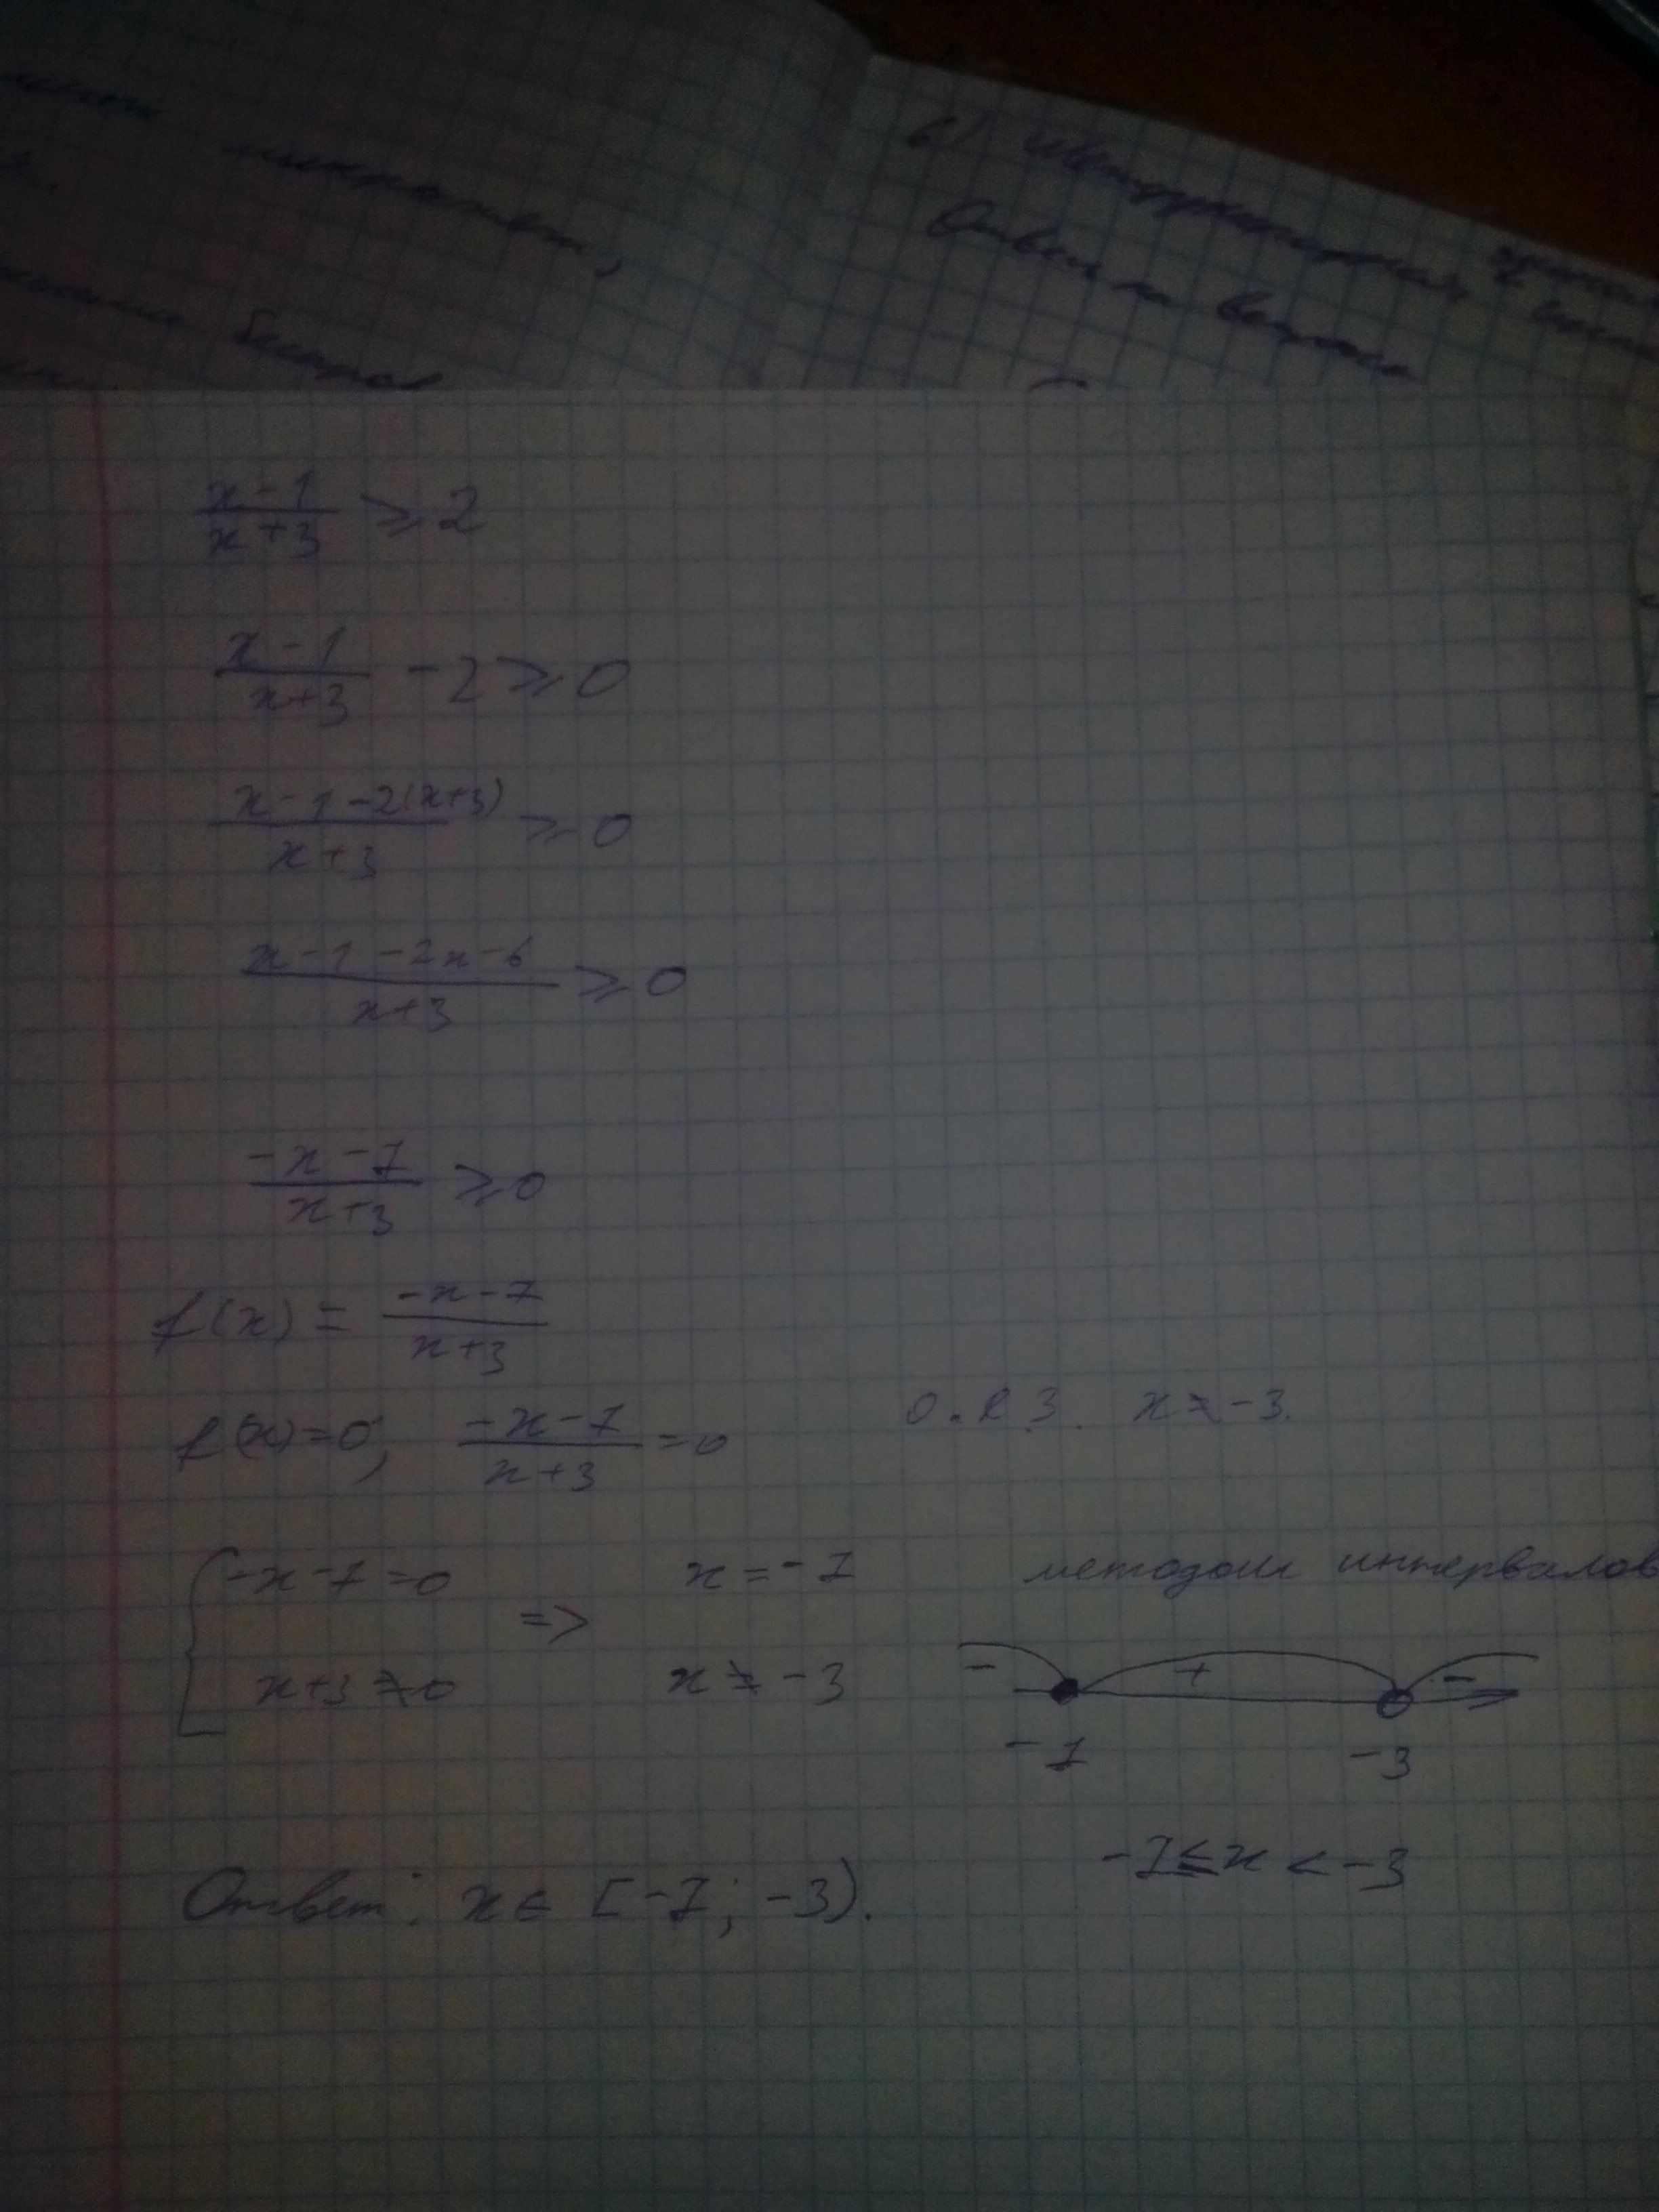 6)
Ответ на вопрос
(x-1)/(x+3) ≥ 2
(x-1)/(x+3) - 2 ≥ 0
(x-1-2(x+3))/(x+3) ≥ 0
(x-1-2x-6)/(x+3) ≥ 0
(-x-7)/(x+3) ≥ 0
f(x) = (-x-7)/(x+3)
f(x)=0, (-x-7)/(x+3) =0 О.Д.З. x ≠ -3.
{ -x-7=0 => x=-7 методом интервалов
x+3≠0 x ≠ -3
- + -
-7 -3
-7≤x<-3
Ответ: x∈[-7; -3).